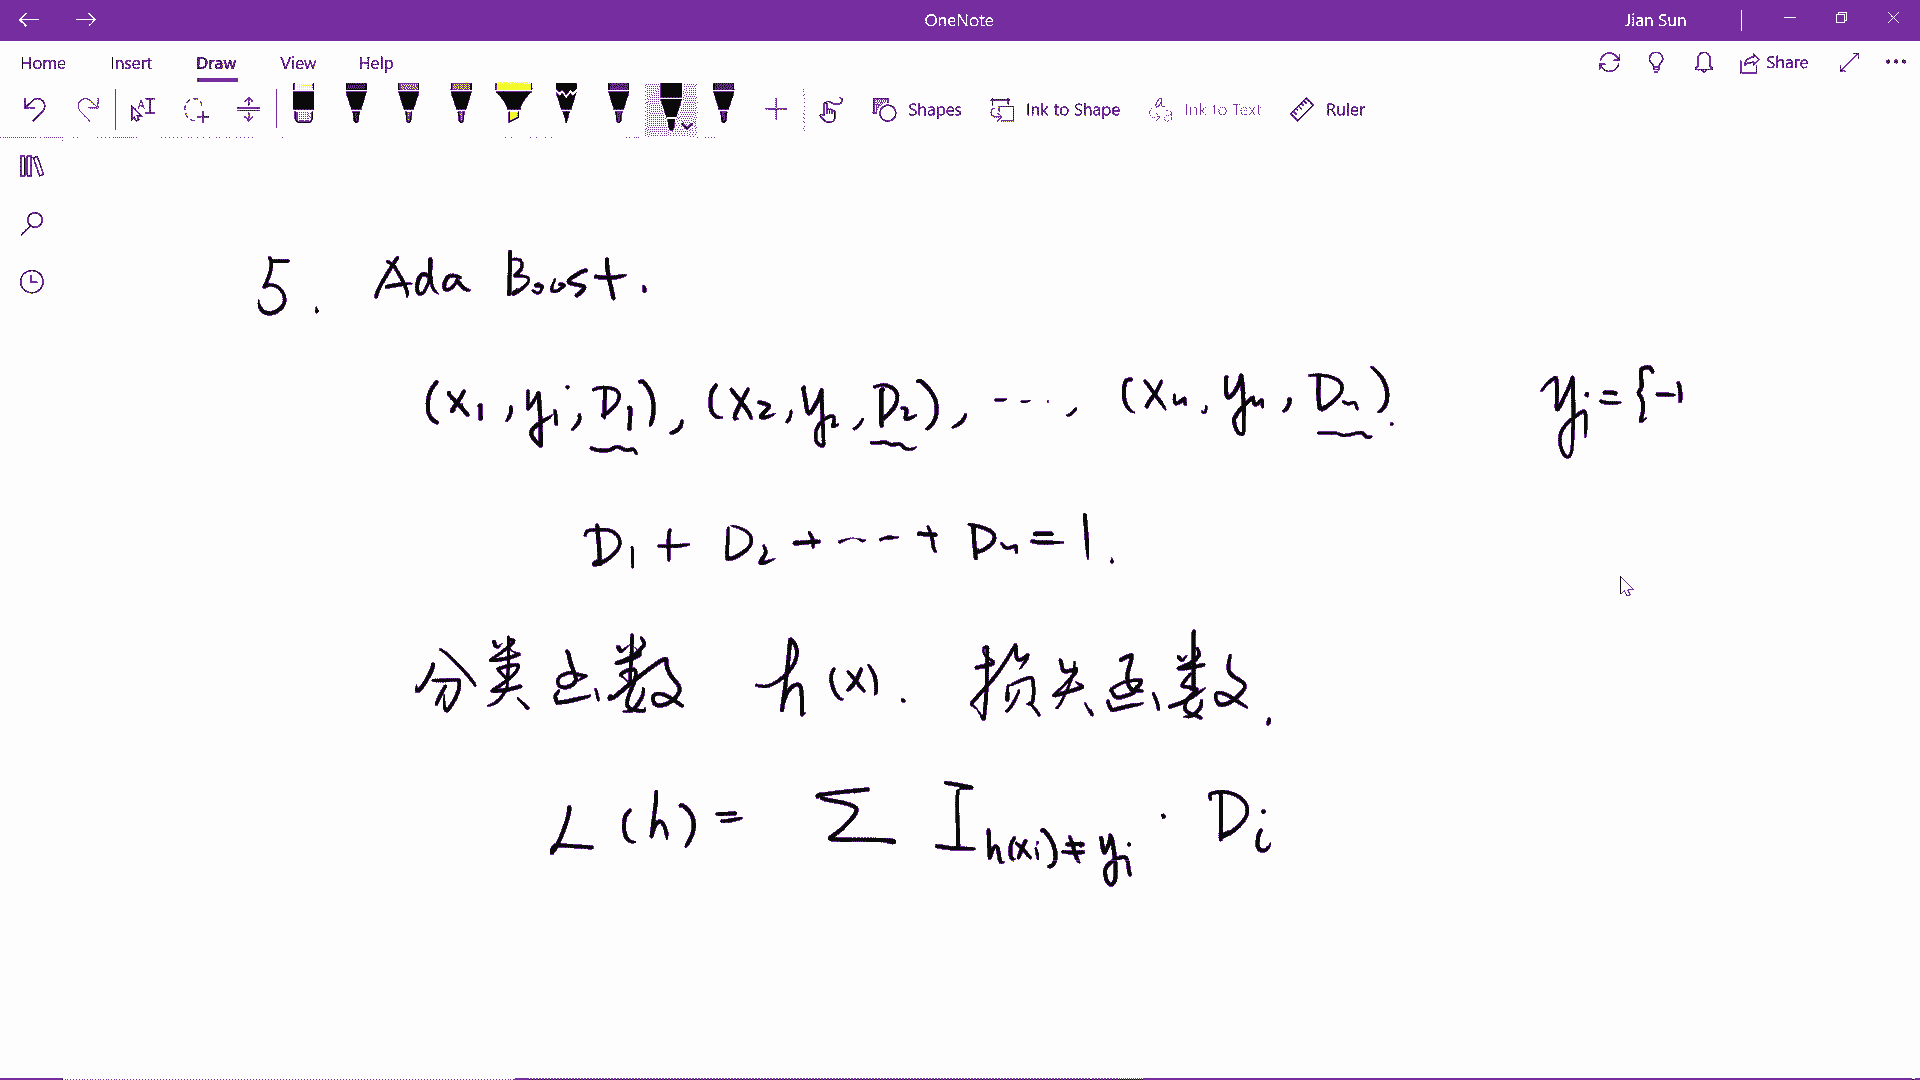 OneNote
Jian Sun
Home Insert Draw View Help
Share
Shapes Ink to Shape Ink to Text Ruler
5. Ada Boost.
(x₁, y₁, D₁), (x₂, y₂, D₂), ..., (xₙ, yₙ, Dₙ). yᵢ = {-1
D₁ + D₂ + ... + Dₙ = 1.
分类函数 h(x). 损失函数.
L(h) = Σ I_{h(xᵢ)≠yᵢ} · Dᵢ